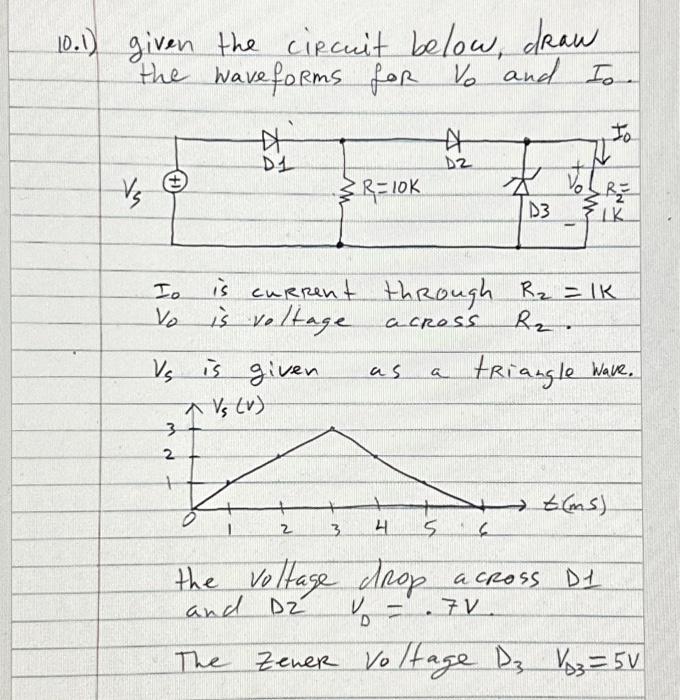 10.1) given the circuit below, draw
the waveforms for Vo and Io.
Io
D1
D2
Vs
+
R1=10K
Vo
R2=
1K
D3
-
Io is current through R2 = 1K
Vo is voltage across R2.
Vs is given as a triangle wave.
Vs (V)
3
2
1
0
1 2 3 4 5 6
t(ms)
the voltage drop across D1
and D2 VD = .7V.
The Zener Voltage D3 VD3=5V